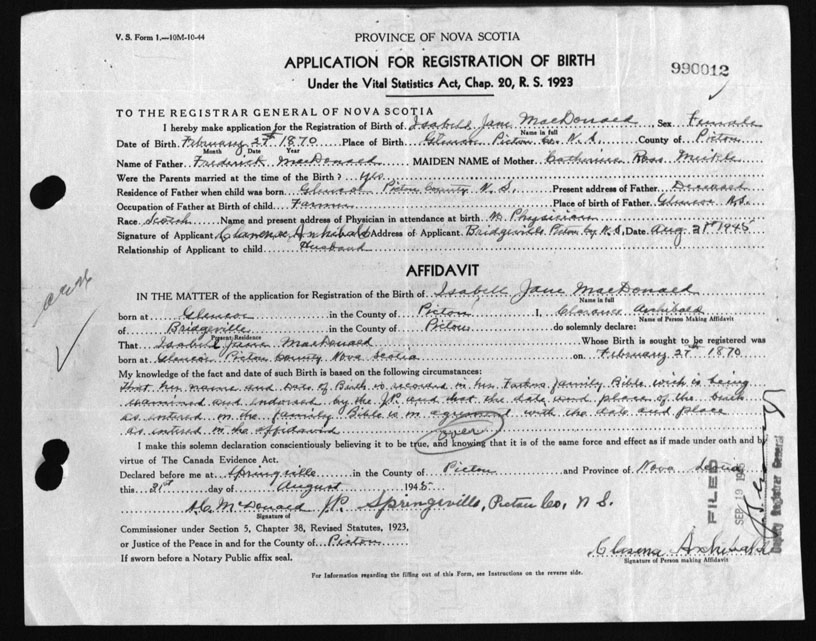 V. S. Form 1.—10M-10-44
PROVINCE OF NOVA SCOTIA
APPLICATION FOR REGISTRATION OF BIRTH
990012
Under the Vital Statistics Act, Chap. 20, R. S. 1923
TO THE REGISTRAR GENERAL OF NOVA SCOTIA
I hereby make application for the Registration of Birth of Isabell Jane MacDonald Sex Female
Name in full
Date of Birth February 27th 1870 Place of Birth Glencoe Pictou Co. N.S. County of Pictou
Month Date Year
Name of Father Frederick MacDonald MAIDEN NAME of Mother Catherine Ross
Were the Parents married at the time of the Birth? Yes
Residence of Father when child was born Glencoe Pictou County N.S. Present address of Father Deceased
Occupation of Father at Birth of child Farmer Place of birth of Father Glencoe N.S.
Race Scotch Name and present address of Physician in attendance at birth No Physician
Signature of Applicant Clarence Archibald Address of Applicant Bridgeville Pictou Co. N.S. Date Aug 31st 1945
Relationship of Applicant to child Husband
AFFIDAVIT
IN THE MATTER of the application for Registration of the Birth of Isabell Jane MacDonald
Name in full
born at Glencoe in the County of Pictou I, Clarence Archibald
Name of Person Making Affidavit
of Bridgeville in the County of Pictou do solemnly declare:
Present Residence
That Isabell Jane MacDonald Whose Birth is sought to be registered was
born at Glencoe Pictou County Nova Scotia on February 27th 1870
My knowledge of the fact and date of such Birth is based on the following circumstances:
That her name and Date of Birth is recorded in her Fathers family Bible wich is being
examined and Endorsed by the J.P. and that the date and place of the birth
as entered in the family Bible is in agreement with the date and place
as entered in the affidavid
over
I make this solemn declaration conscientiously believing it to be true, and knowing that it is of the same force and effect as if made under oath and by
virtue of The Canada Evidence Act.
Declared before me at Springville in the County of Pictou and Province of Nova Scotia
this 31st day of August 1945
McDonald J.P. Springville, Pictou Co, N.S.
Signature of
Commissioner under Section 5, Chapter 38, Revised Statutes, 1923,
or Justice of the Peace in and for the County of Pictou
If sworn before a Notary Public affix seal.
Clarence Archibald
Signature of Person making Affidavit
For Information regarding the filling out of this Form, see Instructions on the reverse side.
FILED
SEP 19
Deputy Registrar General